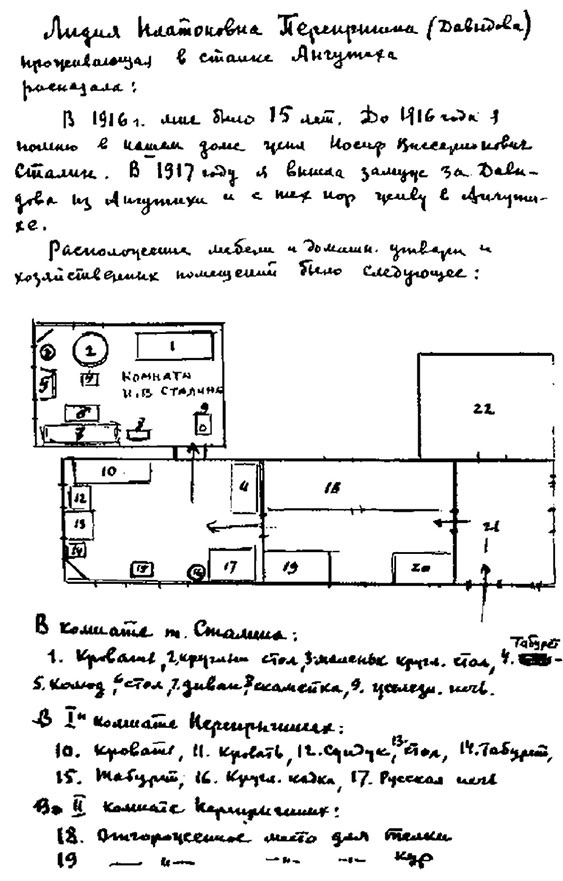 Лидия Платоновна Перепрыгина (Давыдова)
проживающая в станке Ангутиха
рассказала:
В 1916 г. мне было 15 лет. До 1916 года я
помню в нашем доме жил Иосиф Виссарионович
Сталин. В 1917 году я вышла замуж за Давы-
дова из Ангутихи и с тех пор живу в Ангути-
хе.
Расположение мебели и домашн. утвари и
хозяйственных помещений было следующее:
3 2 1
5 4 Комната
И.В. Сталина
6 9
7 8
22
10 4 18
12
13 21
14
15 16 17 19 20
В комнате т. Сталина:
1. Кровать, 2. круглый стол, 3. маленьк кругл. стол, 4. Табурет
5. Комод, 6 стол, 7. диван, 8 скамейка, 9. железн. печь.
В I й комнате Перепрыгиных:
10. Кровать, 11. Кровать, 12. Сундук, 13. стол, 14. Табурет,
15. Табурет, 16. Кругл. кадка, 17. Русская печь
Во II комнате Перепрыгиных:
18. Отгороженное место для телки
19 — „ — — „ — — „ — кур